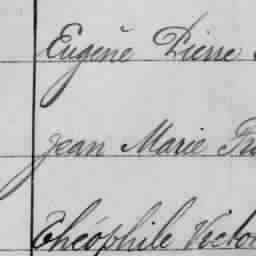 Eugène Pierre
Jean Marie
Théophile Victor